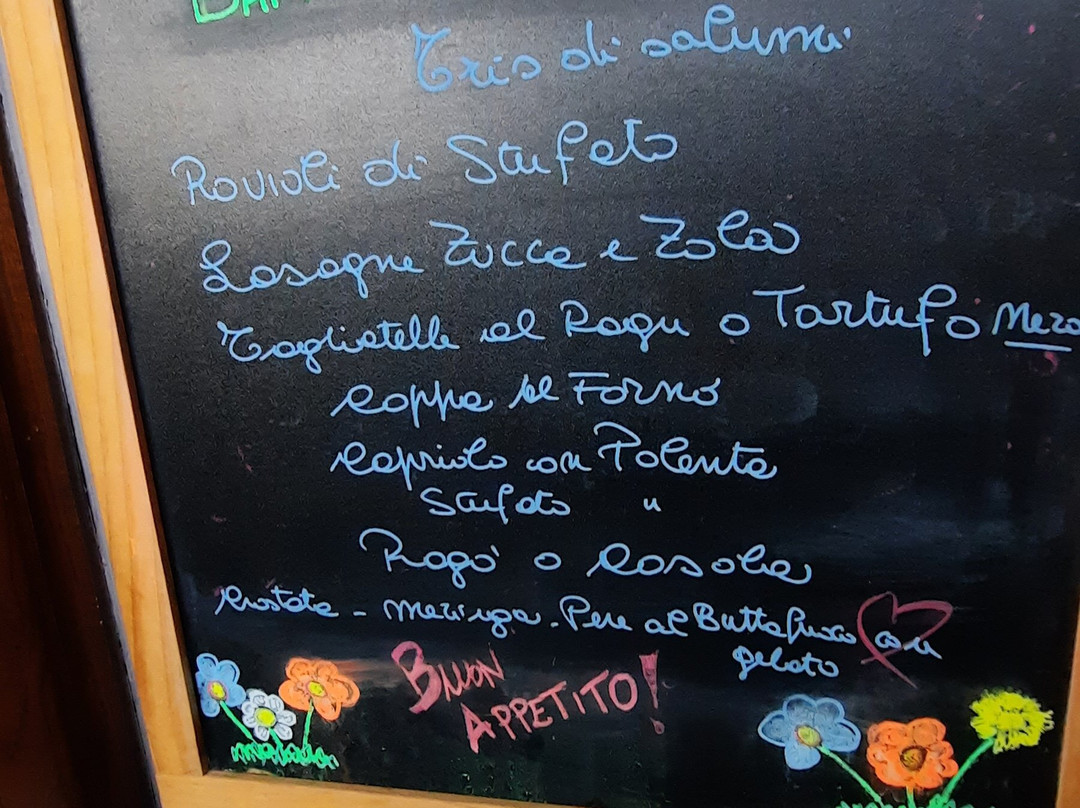 Tris di salumi
Ravioli di Stufato
Lasagne Zucca e Zola
Tagliatelle al Ragu o Tartufo Nero
Coppa al Forno
Capriolo con Polenta
Stufato "
Ragò o Casola
Crostata - Meringa. Pere al Buttafuoco con
gelato
BUON
APPETITO!